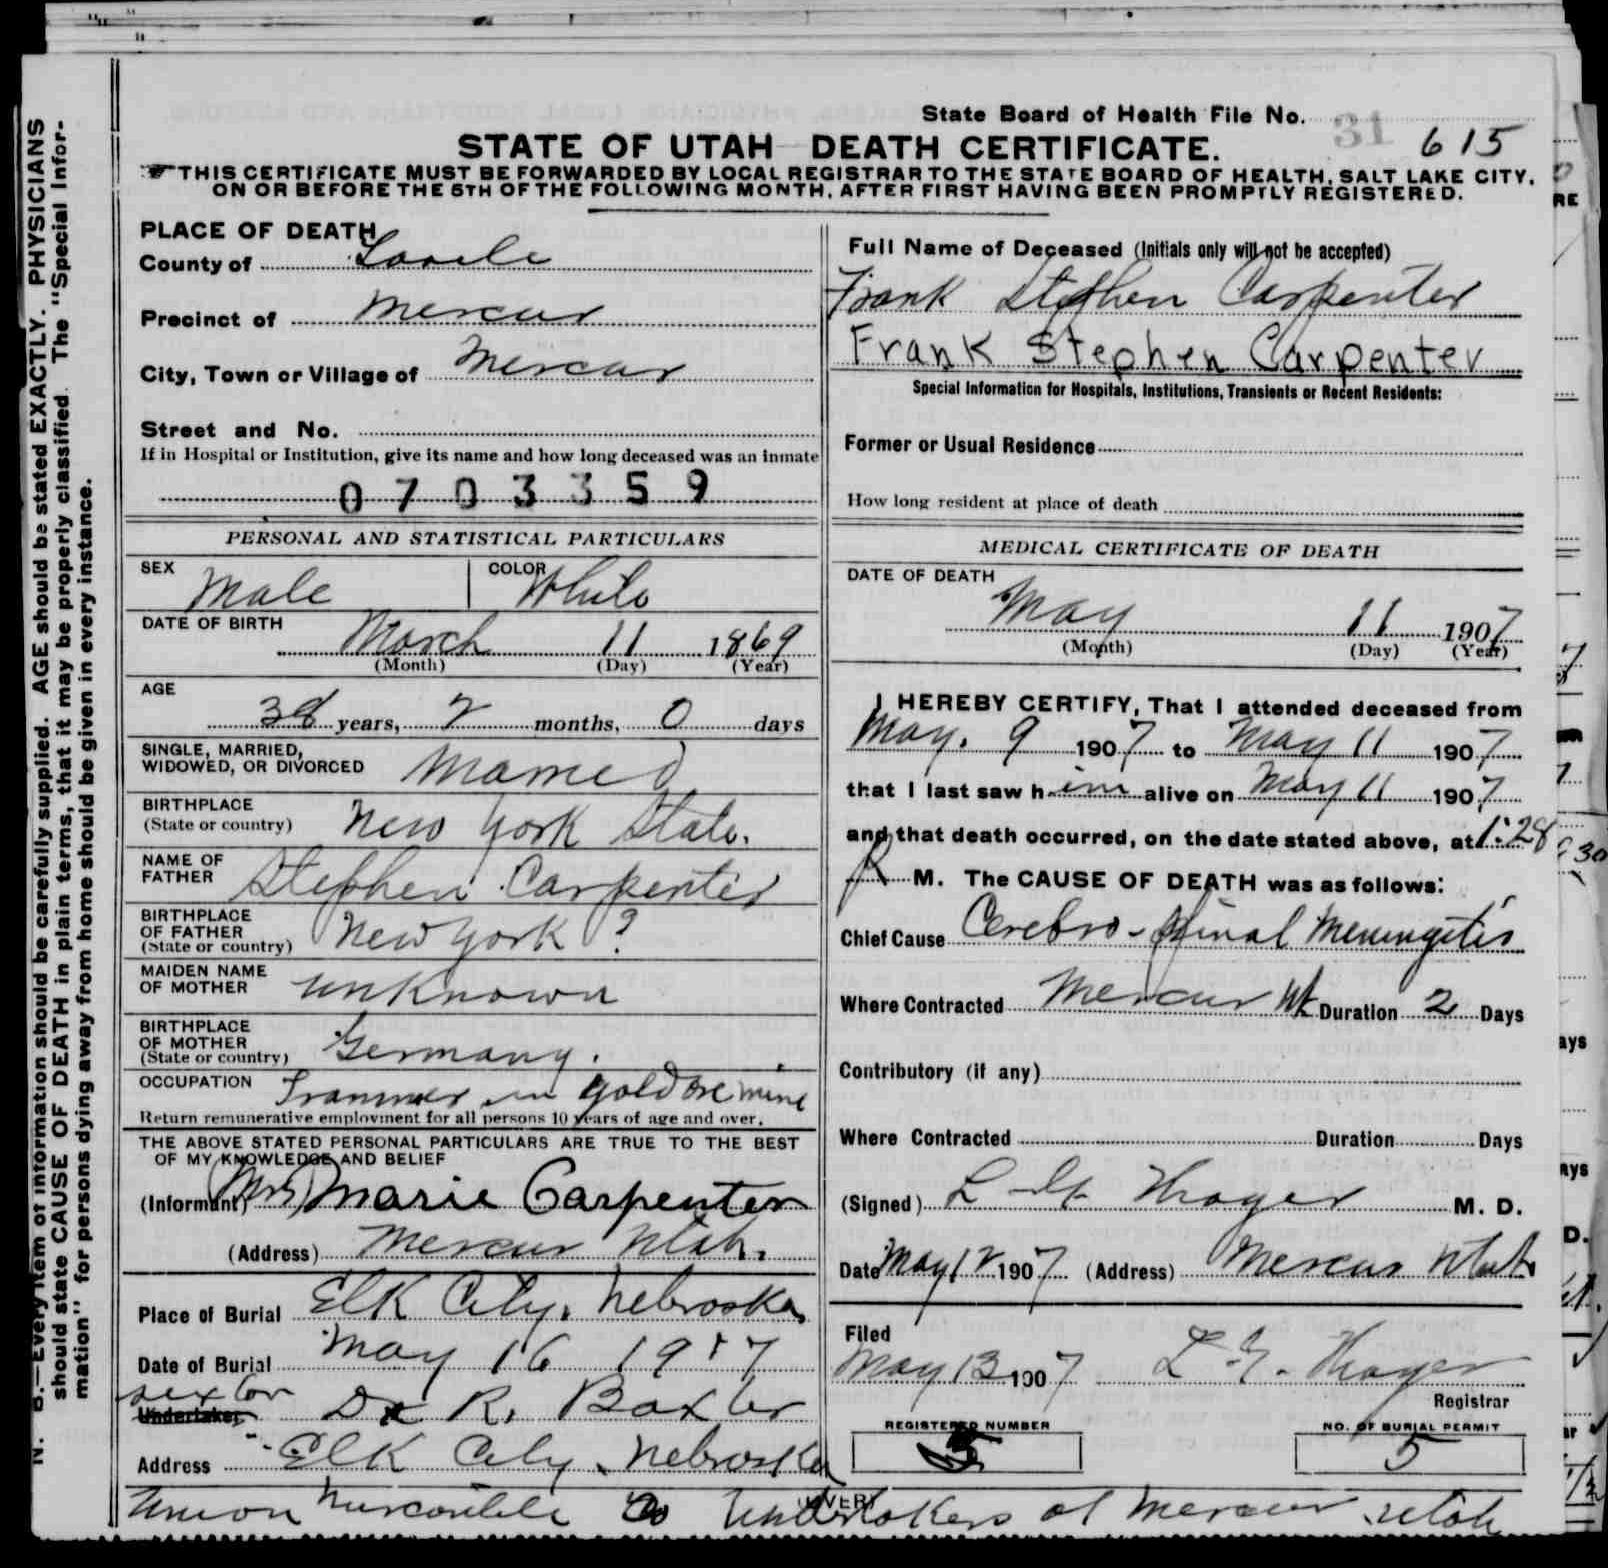 State Board of Health File No. 31 615
STATE OF UTAH DEATH CERTIFICATE.
THIS CERTIFICATE MUST BE FORWARDED BY LOCAL REGISTRAR TO THE STATE BOARD OF HEALTH, SALT LAKE CITY,
ON OR BEFORE THE 5TH OF THE FOLLOWING MONTH, AFTER FIRST HAVING BEEN PROMPTLY REGISTERED.
N. B.—Every item of information should be carefully supplied. AGE should be stated EXACTLY. PHYSICIANS
should state CAUSE OF DEATH in plain terms, that it may be properly classified. The "Special Infor-
mation" for persons dying away from home should be given in every instance.
PLACE OF DEATH
County of Tooele
Precinct of Mercur
City, Town or Village of Mercur
Street and No.
If in Hospital or Institution, give its name and how long deceased was an inmate
0703359
PERSONAL AND STATISTICAL PARTICULARS
SEX Male COLOR White
DATE OF BIRTH
March 11 1869
(Month) (Day) (Year)
AGE
38 years, 2 months, 0 days
SINGLE, MARRIED,
WIDOWED, OR DIVORCED Married
BIRTHPLACE
(State or country) New York State.
NAME OF
FATHER Stephen Carpenter
BIRTHPLACE
OF FATHER
(State or country) New York ?
MAIDEN NAME
OF MOTHER unknown
BIRTHPLACE
OF MOTHER
(State or country) Germany.
OCCUPATION Trammer in gold ore mine
Return remunerative employment for all persons 10 years of age and over.
THE ABOVE STATED PERSONAL PARTICULARS ARE TRUE TO THE BEST
OF MY KNOWLEDGE AND BELIEF
(Informant) (Mrs) Marie Carpenter
(Address) Mercur Utah.
Place of Burial Elk City, Nebraska
Date of Burial May 16 1907
sexton
Undertaker R. Baxter
Address Elk City, Nebraska
Full Name of Deceased (Initials only will not be accepted)
Frank Stephen Carpenter
Frank Stephen Carpenter
Special Information for Hospitals, Institutions, Transients or Recent Residents:
Former or Usual Residence
How long resident at place of death
MEDICAL CERTIFICATE OF DEATH
DATE OF DEATH
May 11 1907
(Month) (Day) (Year)
I HEREBY CERTIFY, That I attended deceased from
May. 9 1907 to May 11 1907
that I last saw him alive on May 11 1907
and that death occurred, on the date stated above, at 1:28
P M. The CAUSE OF DEATH was as follows:
Chief Cause Cerebro-spinal Meningitis
Where Contracted Mercur Ut Duration 2 Days
Contributory (if any)
Where Contracted Duration Days
(Signed) M. D.
Date May 12 1907 (Address) Mercur Utah
Filed
May 13 1907
Registrar
REGISTERED NUMBER
5
NO. OF BURIAL PERMIT
5
(OVER)
Union Mercantile Co Undertakers at Mercur Utah